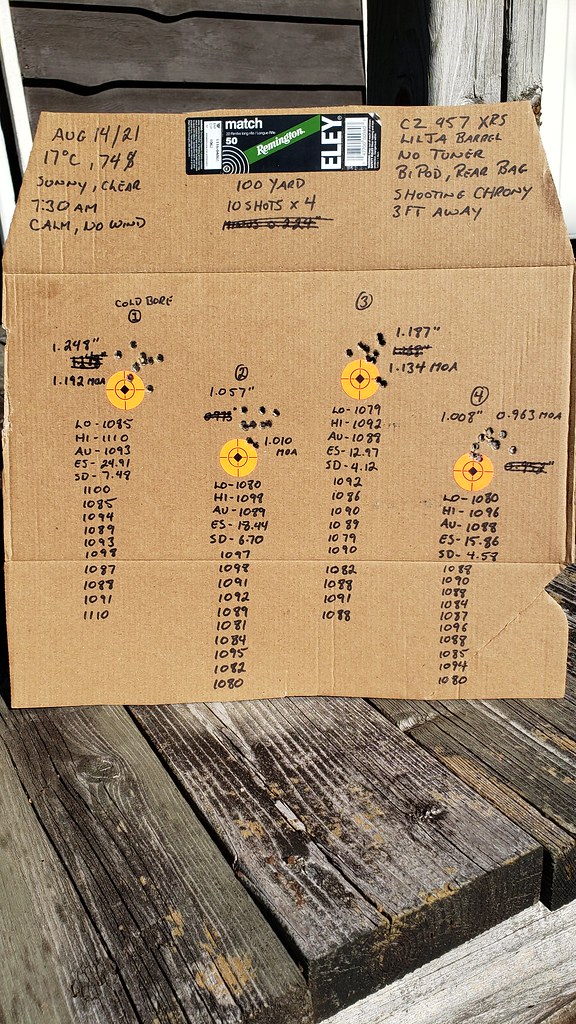 AUG 14/21
17°C, 74%
SUNNY, CLEAR
7:30 AM
CALM, NO WIND
match
50
Remington
ELEY
100 YARD
10 SHOTS x 4
CZ 457 XRS
LILJA BARREL
NO TUNER
BIPOD, REAR BAG
SHOOTING CHRONY
3FT AWAY
COLD BORE
1
1.248"
1.192 MOA
LO-1085
HI-1110
AU-1093
ES-24.91
SD-7.48
1100
1085
1094
1089
1093
1098
1087
1088
1091
1110
2
1.057"
1.010
MOA
LO-1080
HI-1098
AU-1089
ES-18.44
SD-6.70
1097
1098
1091
1092
1089
1081
1084
1095
1082
1080
3
1.187"
1.134 MOA
LO-1079
HI-1092
AU-1088
ES-12.97
SD-4.12
1092
1086
1090
1089
1079
1090
1082
1088
1091
1088
4
1.008" 0.963 MOA
LO-1080
HI-1096
AU-1088
ES-15.86
SD-4.58
1088
1090
1088
1084
1087
1096
1088
1085
1094
1080